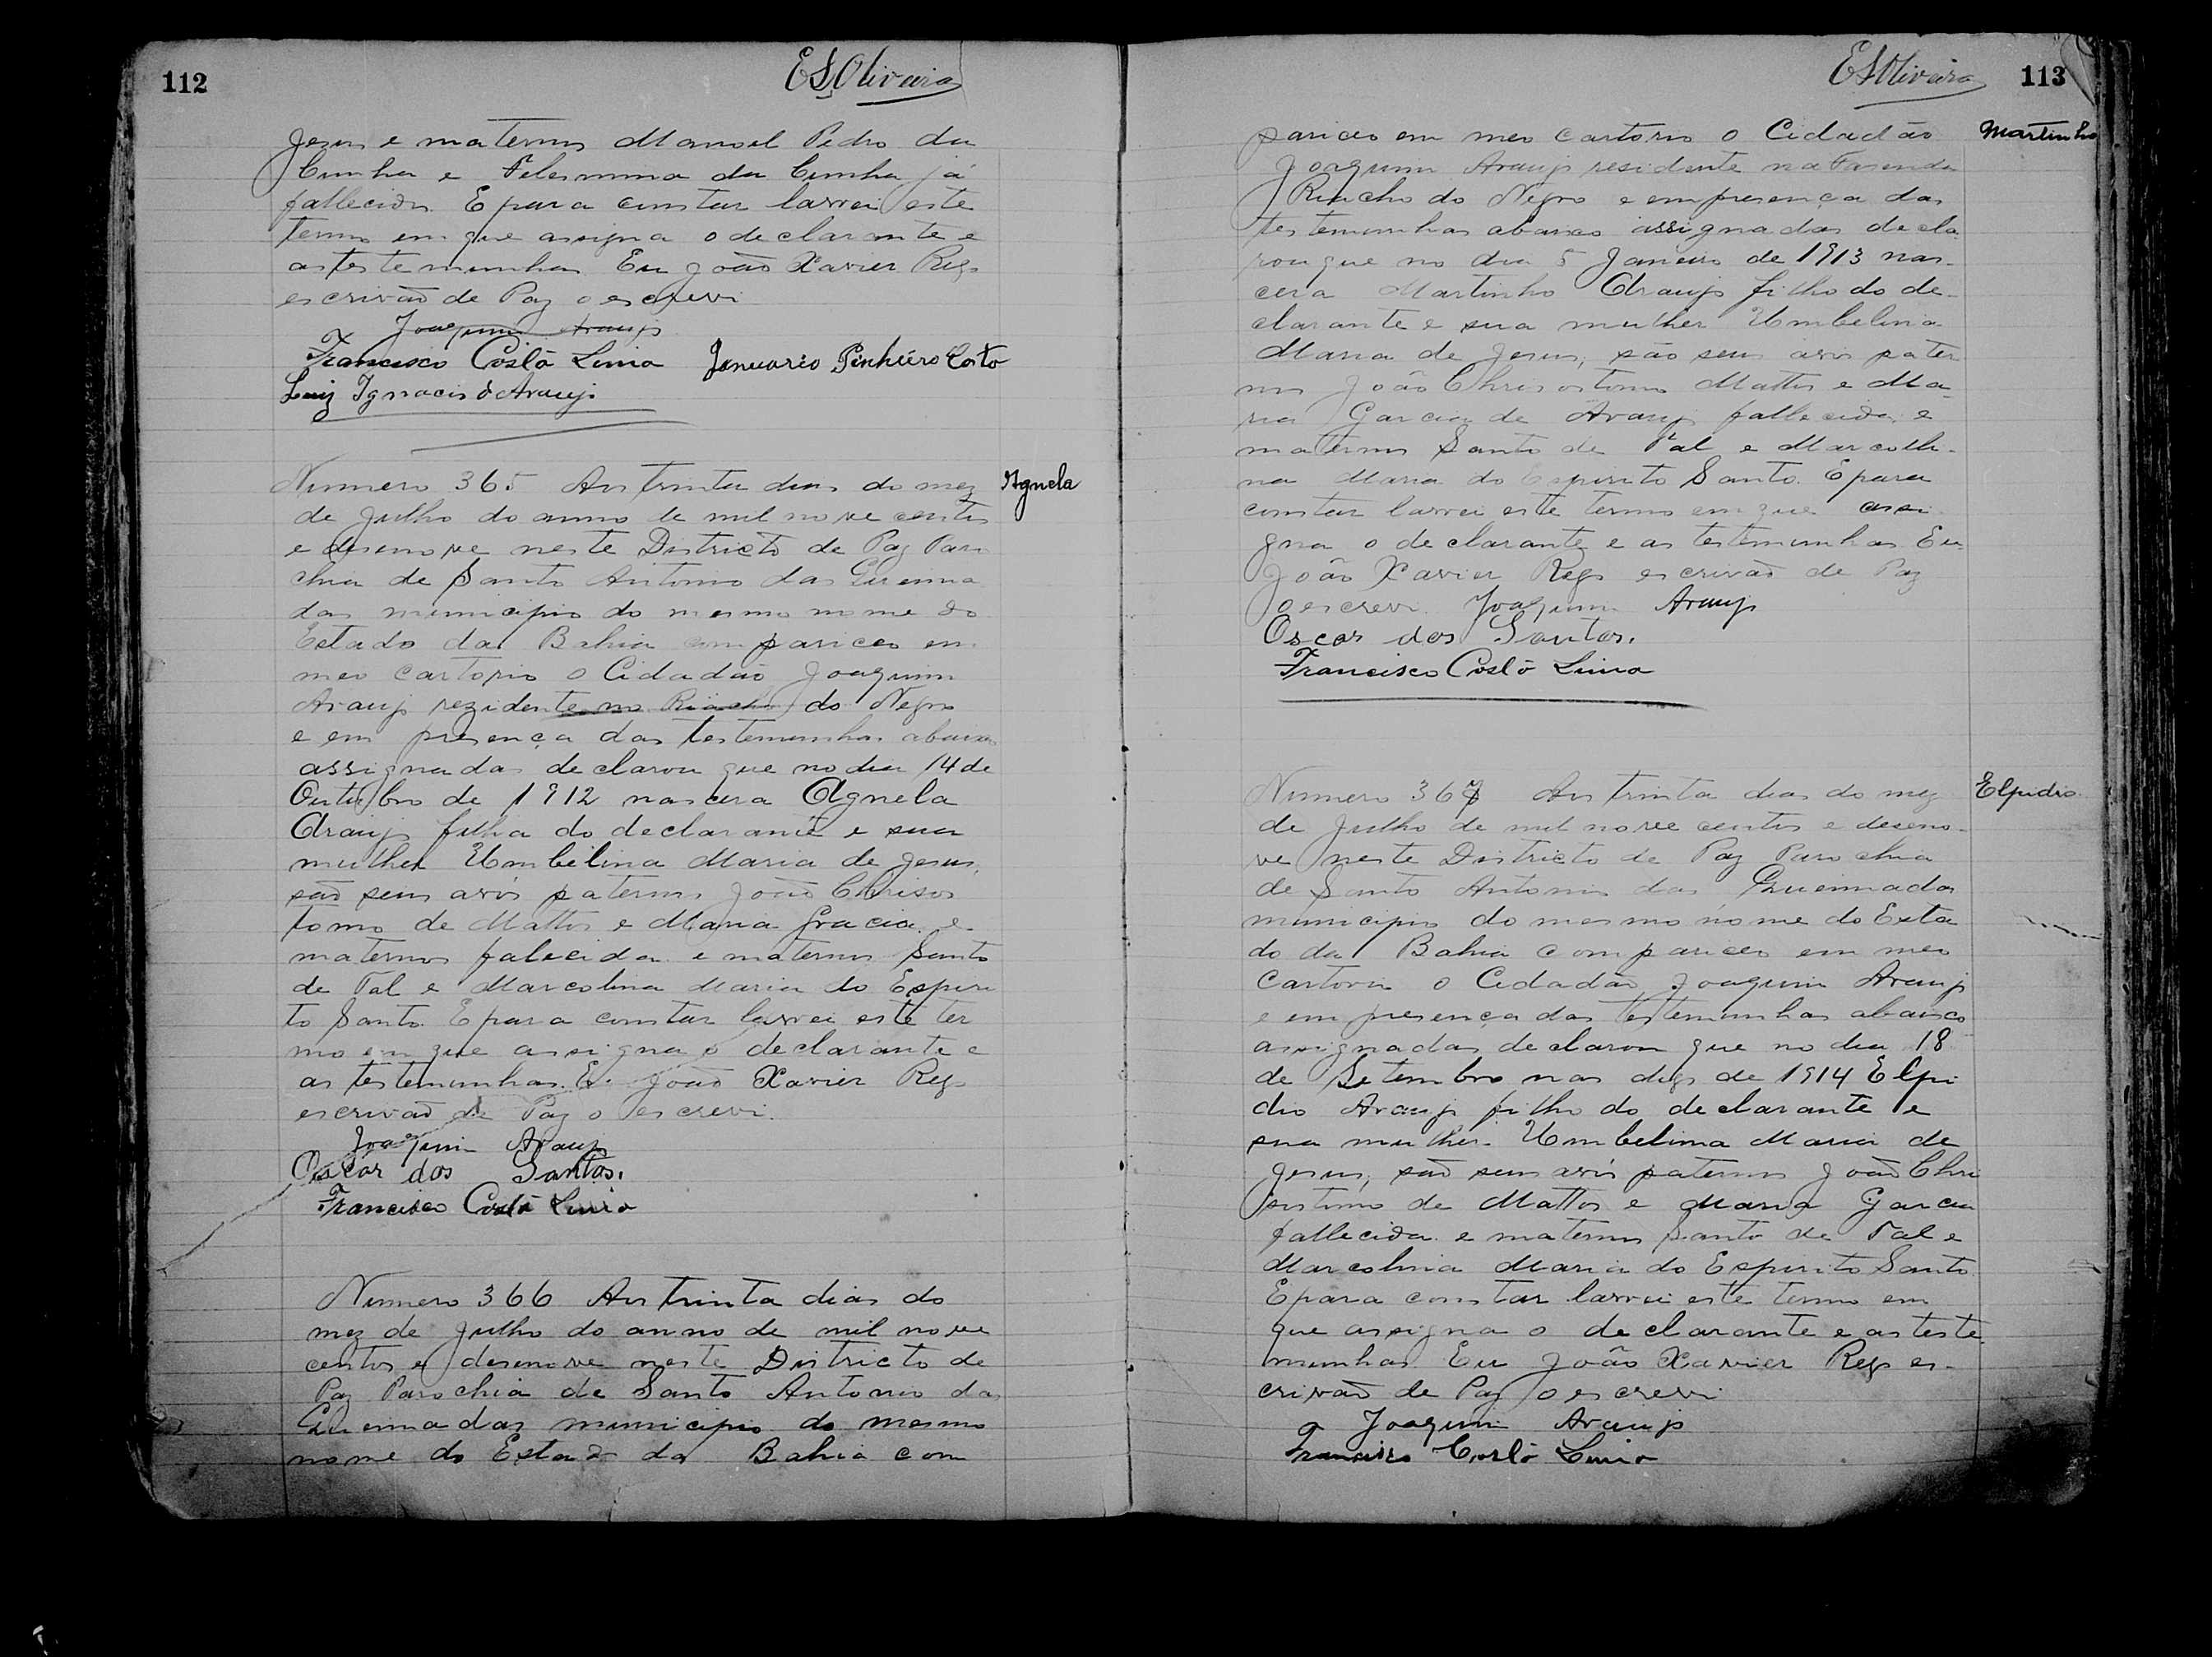 112
ESOliveira
Jesus e maternos Manoel Pedro da
Cunha e Felesmina da Cunha já
fallecidos. E para constar lavrei este
termo em que assigna o declarante e
as testemunhas Eu João Xavier Rego
escrivão de Paz o escrevi
Joaquim Araujo
Francisco Costa Lima Januario Pinheiro Costo
Luiz Ignacio d Araujo
Numero 365 Aos trinta dias do mez
Agnela
de Julho do anno de mil nove centos
e desenove neste Districto de Paz Paro
chia de Santo Antonio das Queima
das municipio do mesmo nome do
Estado da Bahia compariceo em
meo cartorio o Cidadão Joaquim
Araujo rezidente no Riacho do Negro
e em presença das testemunhas abaixo
assignadas declarou que no dia 14 de
Outubro de 1912 nascera Agnela
Araujo filha do declarante e sua
mulher Umbelina Maria de Jesus,
são seus avós paternos João Chrisos
tomo de Mattos e Maria Gracia e
maternos falecida e maternos Santo
de Tal e Marcolina Maria do Espiri
to Santo. E para constar lavrei este ter
mo em que assigna o declarante e
as testemunhas. Eu João Xavier Rego
escrivão de Paz o escrevi.
Joaquim Araujo
Oscar dos Santos.
Francisco Costa Lima
Numero 366 Aos trinta dias do
mez de Julho do anno de mil nove
centos e desenove neste Districto de
Paz Parochia de Santo Antonio das
Queimadas municipio do mesmo
nome do Estado da Bahia com
ESOliveira
113
pariceo em meo cartorio o Cidadão
Martinho
Joaquim Araujo residente na Fazenda
Riacho do Negro e em presença das
testemunhas abaixo assignadas decla
rou que no dia 5 Janeiro de 1913 nas-
cera Martinho Araujo filho do de-
clarante e sua mulher Umbelina
Maria de Jesus, são seus avós pater
nos João Chrisostomo Mattos e Ma-
ria Garcia de Araujo fallecida e
maternos Santo de Tal e Marcolli-
na Maria do Espirito Santo. E para
constar lavrei este termo em que assi
gna o declarante e as testemunhas Eu
João Xavier Rego escrivão de Paz
o escrevi. Joaquim Araujo
Oscar dos Santos.
Francisco Costa Lima
Numero 367 Aos trinta dias do mez
Elpidio
de Julho de mil nove centos e deseno-
ve neste Districto de Paz Parochia
de Santo Antonio das Queimadas
municipio do mesmo nome do Esta
do da Bahia compariceo em meo
Cartorio o Cidadão Joaquim Araujo
e em presença das testemunhas abaixo
assignadas declarou que no dia 18
de Setembro nas digo de 1914 Elpi
dio Araujo filho do declarante e
sua mulher Umbelima Maria de
Jesus, são seus avós paternos João Chri
sostimo de Mattos e Maria Garcia
fallecida e maternos Santo de Tal e
Marcolina Maria do Espirito Santo
E para constar lavrei este termo em
que assigna o declarante e as teste
munhas Eu João Xavier Rego es-
crivão de Paz o escrevi
Joaquim Araujo
Francisco Costa Lima